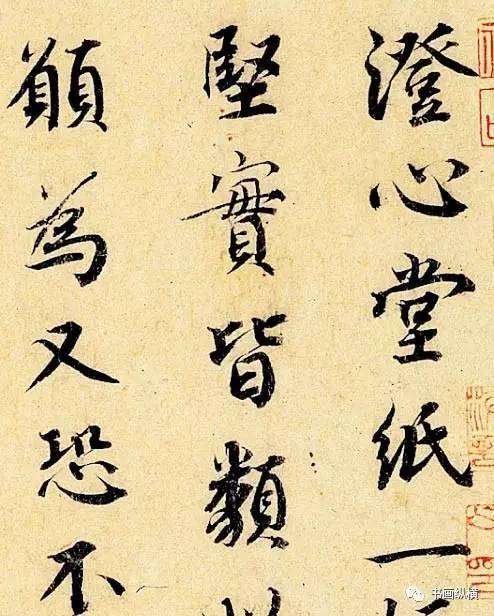 澄心堂紙一
堅實皆類
願為又恐不
书画纵横